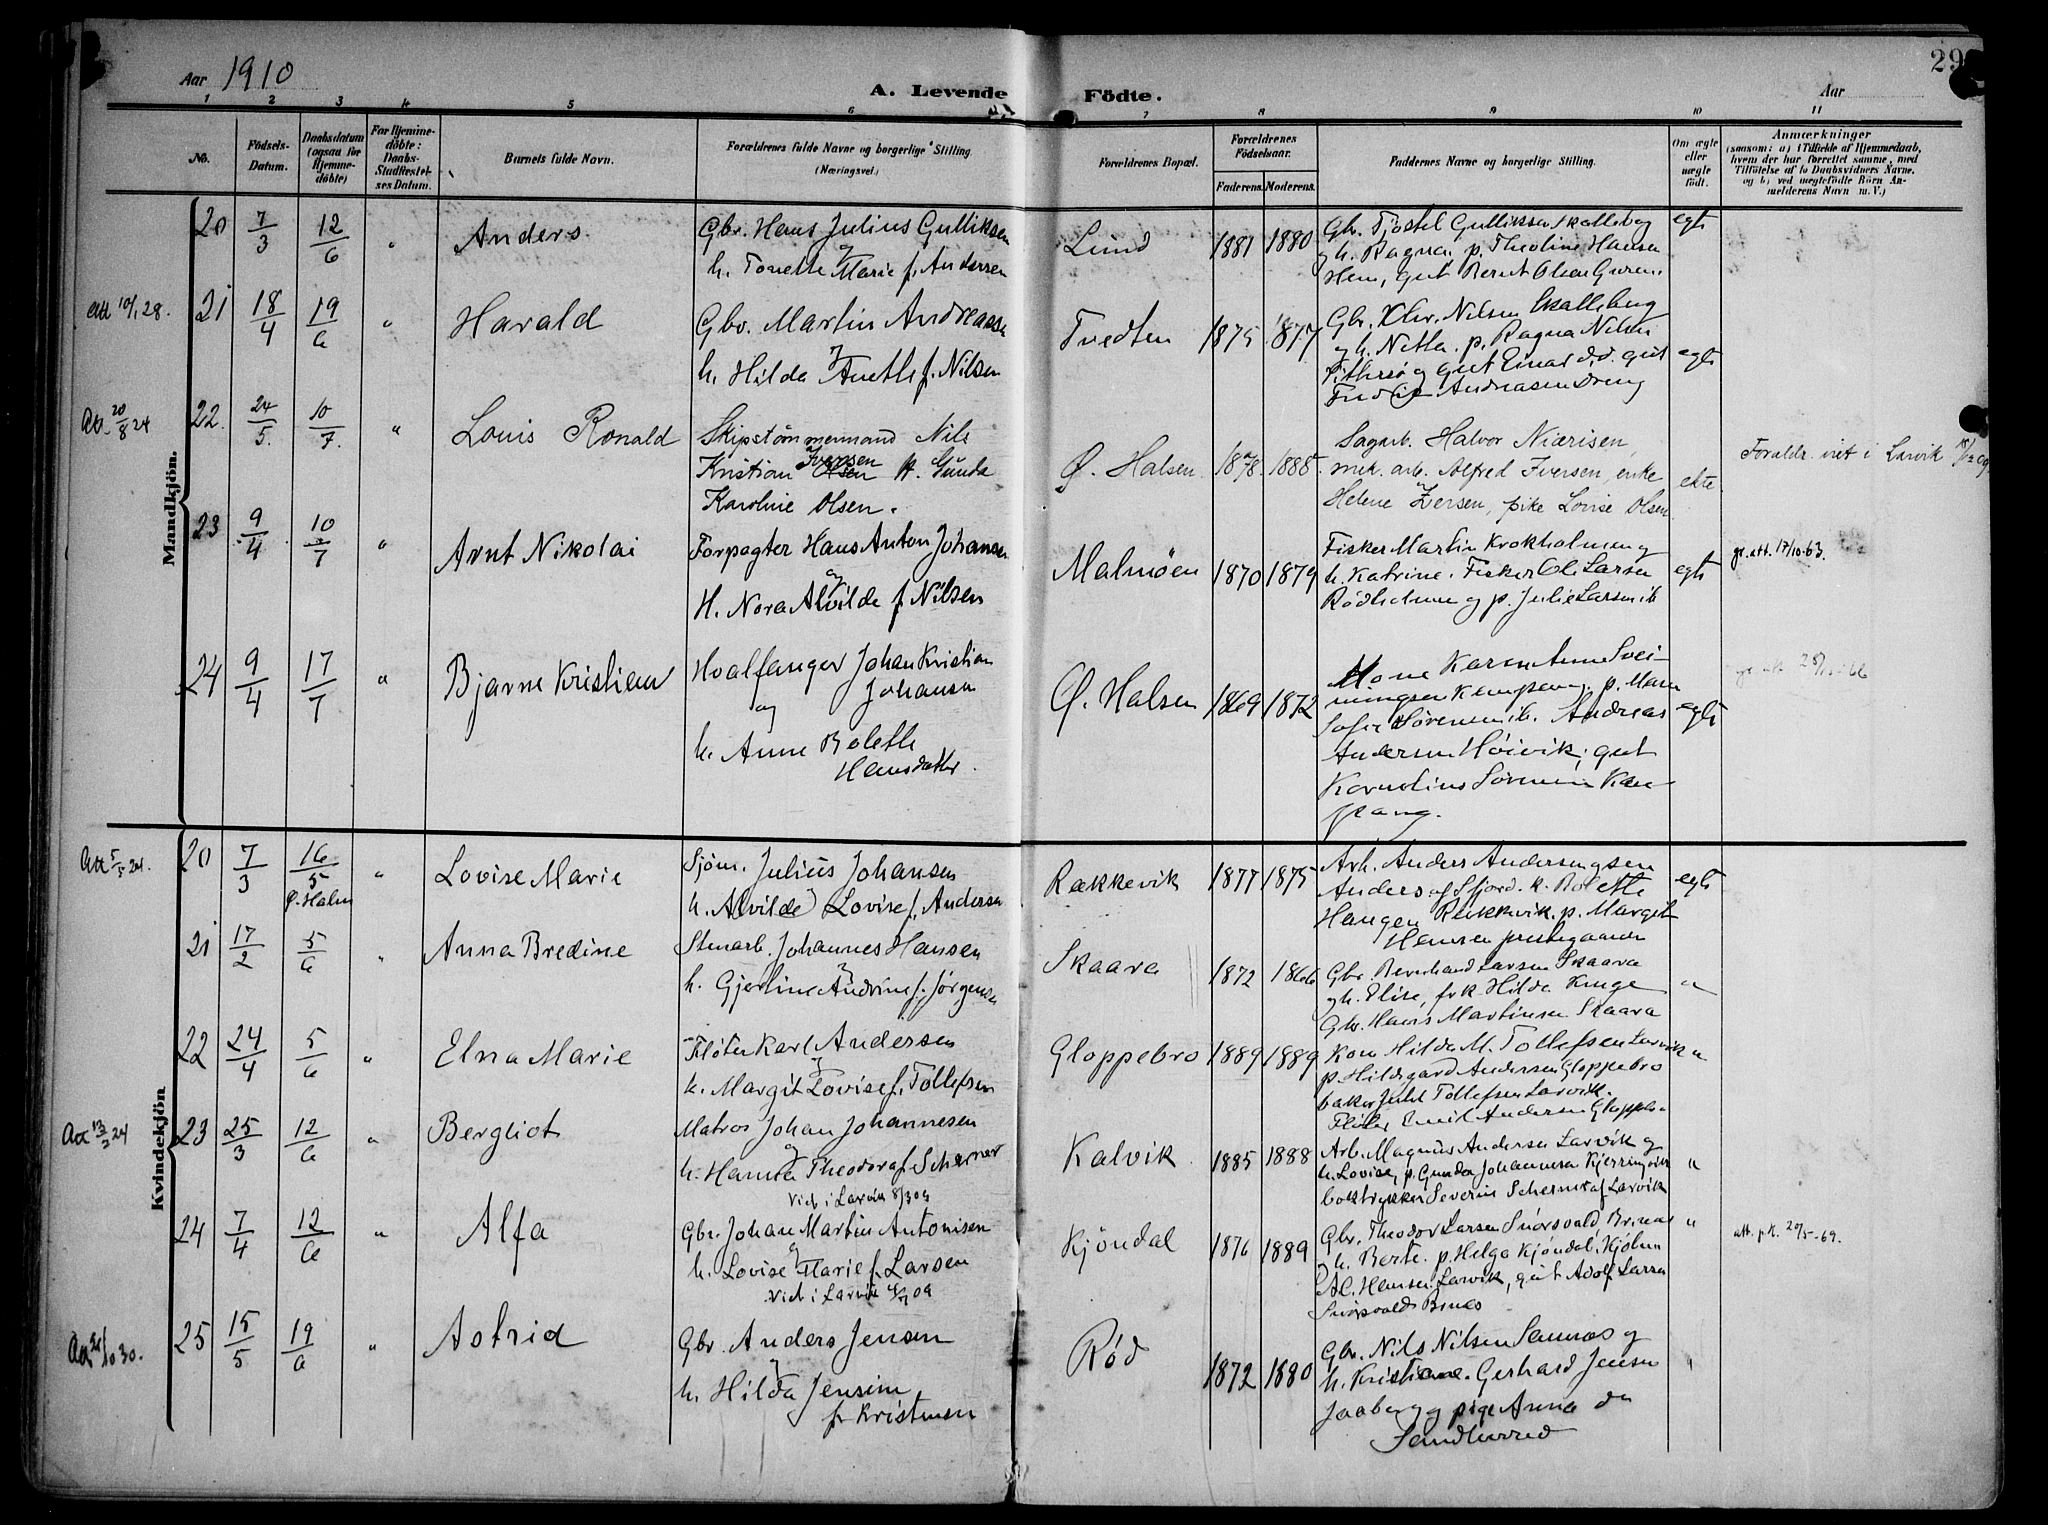 29
Aar 1910
A. Levende Födte.
Aar
1 2 3 4 5 6 7 8 9 10 11
No.
Födsels-Datum.
Daabsdatum (ogsaa for Hjemmedöbte)
For Hjemmedöbte: Daabs-Stadfæstelses Datum.
Barnets fulde Navn.
Forældrenes fulde Navne og borgerlige Stilling (Næringsvei.)
Forældrenes Bopæl.
Forældrenes Födselsaar.
Faderens. Moderens.
Faddernes Navne og borgerlige Stilling.
Om ægte eller uægte födt.
Anmærkninger
(saasom: a) i Tilfælde af Hjemmedaab, hvem der har forrettet samme, med Tilföielse af to Daabsvidners Navne, og b) ved uægtefödte Börn Anmelderens Navn m. V.)
Mandkjön.
20 7/3 12/6 " Anders
Gbr. Hans Julius Gulliksen
og
h. Tonette Marie f. Andersen
Lund 1881 1880
Gbr. Tjostel Gulliksen Skalleberg
og h. Ragna, p. Theoline Hansen
Hem, gut Bernt Olsen
egte
Att 10/1 28. 21 18/4 19/6 " Harald
Gbr. Martin Andreassen
og
h. Hilda Anette f. Nilsen
Tvedten 1875 1877
Gbr. Chr. Nilsen Skalleberg
og h. Netta. p. Ragna Nilsen
og gut Einar d.d. gut
Andreasen
egte
Att. 20/8 24 22. 24/5. 10/7. " Louis Ronald
Skipstømmermand Nils
Kristian Iversen H. Gunda
Karoline Olsen.
Ø. Halsen. 1878. 1885
Sagarb. Halvor
mek. arb. Alfred Iversen, enke
Helene Iversen, pike Lovise Olsen
ekte.
Foreldr. viet i Larvik
23 9/4 10/7 " Arnt Nikolai
Forpagter Hans Anton Johansen
og
H. Nora Alvilde f. Nilsen
Malmøen 1870 1879
Fisker Martin Krokholmen og
h. Katrine. Fisker Ole Larsen
Rødholmen og p. Julie Larsen ib.
egte
gr. att. 17/10-63.
24 9/4 17/7 " Bjarne Kristian
Hvalfanger Johan Kristian
Johansen
og
h. Anne Bolette
Hansdatter.
Ø. Halsen 1869 1872
Kone Karen Anne
p. Maren
Sofie Sørensen ib. Andreas
Andersen Høivik, gut
Kornelius Sørensen
egte
Kvindekjön
Att 5/5 24. 20 7/3 16/5 Ø. Halsen " Lovise Marie
Sjøm. Julius Johansen
h. Alvilde Lovise f. Andersen
Rækkevik 1877 1875
Arb. Anders Andersen
k. Bolette
Haugen Rækkevik. p. Margit
Hansen prestegaarden
egte
21 17/2 5/6 " Anna Bredine
Stenarb. Johannes Hansen
og
h. Gjerline Andrine f. Jørgensen
Skaara 1872 1866
Gbr. Bernhard Larsen Skaara
og h. Elise, frk. Hilda
Gbr. Hans Martinsen Skaara
"
22 24/4 5/6 " Elna Marie
Fløter Karl Andersen
og
h. Margit Lovise f. Tollefsen
Gloppebro 1889 1889
Kone Hilda M. Tollefsen Larvik
p. Hildegard Andersen Gloppebro
baker Juhl Tollefsen Larvik.
Fløter Emil Andersen Gloppebro
"
Att 13/2 24 23 25/3 12/6 " Bergliot
Matros Johan Johannesen
og
h. Hanna Theodora f. Scherner
Viet i Larvik 8/3 09
Kalvik 1885 1888
Arb. Magnus Andersen Larvik og
h. Lovise, p. Gunda Johannesen Kjerringvik
boktrykker Severin Scherner Larvik
"
24 7/4 12/6 " Alfa
Gbr. Johan Martin Antonisen
og
h. Lovise Marie f. Larsen
Viet i Larvik 09
Kjøndal 1876 1889
Gbr. Theodor Larsen
h. Berte. p. Helga Kjøndal,
Hansen Larvik, gut Adolf Larsen
"
att. p.k. 20/5-69.
Att 30. 25 15/5 19/6 " Astrid
Gbr. Anders Jensen
og
h. Hilda Jensine
f. Kristensen
Rød 1872 1880
Gbr. Nils Nilsen og
h. Kristiane. Gerhard Jensen
Jaaberg og pige Anna
"